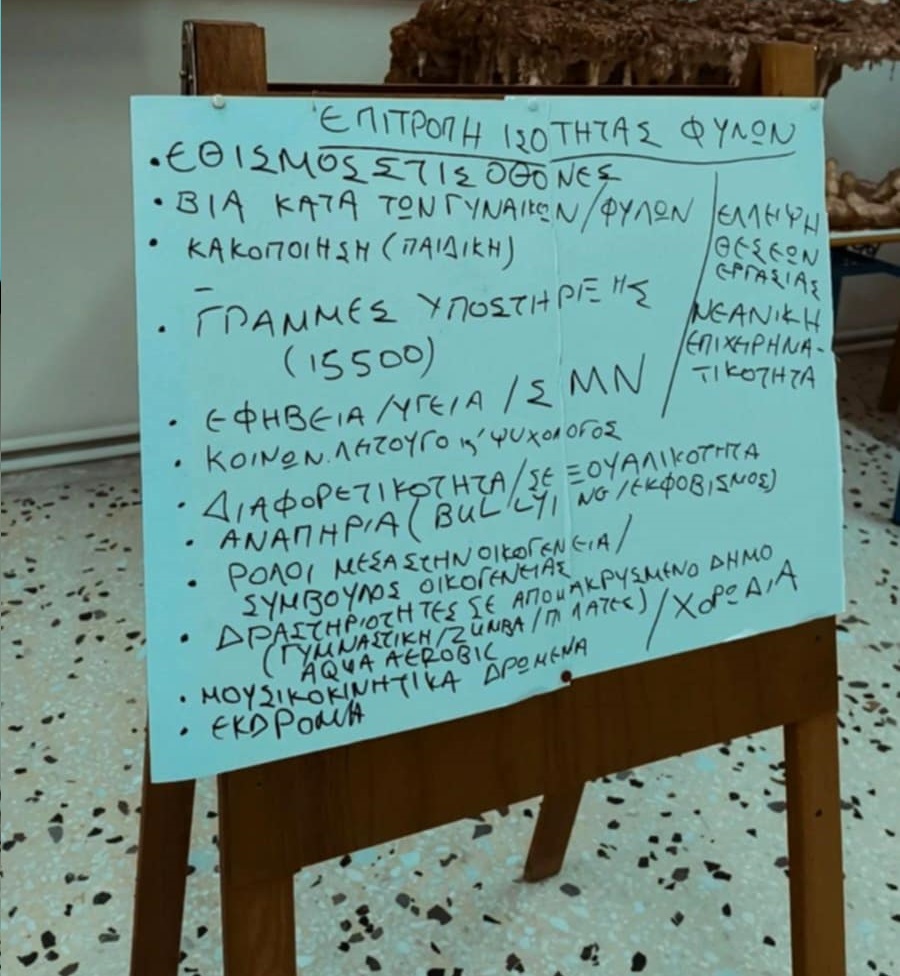 ΕΠΙΤΡΟΠΗ ΙΣΟΤΗΤΑΣ ΦΥΛΩΝ
• ΕΘΙΣΜΟΣ ΣΤΙΣ ΟΘΟΝΕΣ
• ΒΙΑ ΚΑΤΑ ΤΩΝ ΓΥΝΑΙΚΩΝ/ΦΥΛΩΝ
• ΚΑΚΟΠΟΙΗΣΗ (ΠΑΙΔΙΚΗ)
–
• ΓΡΑΜΜΕΣ ΥΠΟΣΤΗΡΙΞΗΣ
(15500)
/ΕΛΛΕΙΨΗ
ΘΕΣΕΩΝ
ΕΡΓΑΣΙΑΣ
ΝΕΑΝΙΚΗ
ΕΠΙΧΕΙΡΗΝΑ-
ΤΙΚΟΤΗΤΑ
• ΕΦΗΒΕΙΑ/ΥΓΕΙΑ/ΣΜΝ
• ΚΟΙΝΩΝ. ΛΕΙΤΟΥΓΟ Κ' ΨΥΧΟΛΟΓΟΣ
• ΔΙΑΦΟΡΕΤΙΚΟΤΗΤΑ/ΣΕΞΟΥΑΛΙΚΟΤΗΤΑ
• ΑΝΑΠΗΡΙΑ (BULLYING/ΕΚΦΟΒΙΣΜΟΣ)
• ΡΟΛΟΙ ΜΕΣΑ ΣΤΗΝ ΟΙΚΟΓΕΝΕΙΑ/
ΣΥΜΒΟΥΛΟΣ ΟΙΚΟΓΕΝΕΙΑΣ
• ΔΡΑΣΤΗΡΙΟΤΗΤΕΣ ΣΕ ΑΠΟΜΑΚΡΥΣΜΕΝΟ ΔΗΜΟ
(ΓΥΜΝΑΣΤΙΚΗ/ΖUΝΒΑ/ΠΙΛΑΤΕΣ) /ΧΟΡΩΔΙΑ
AQUA AEROBIC
• ΜΟΥΣΙΚΟΚΙΝΗΤΙΚΑ ΔΡΩΜΕΝΑ
• ΕΚDΡΟΜΙΑ